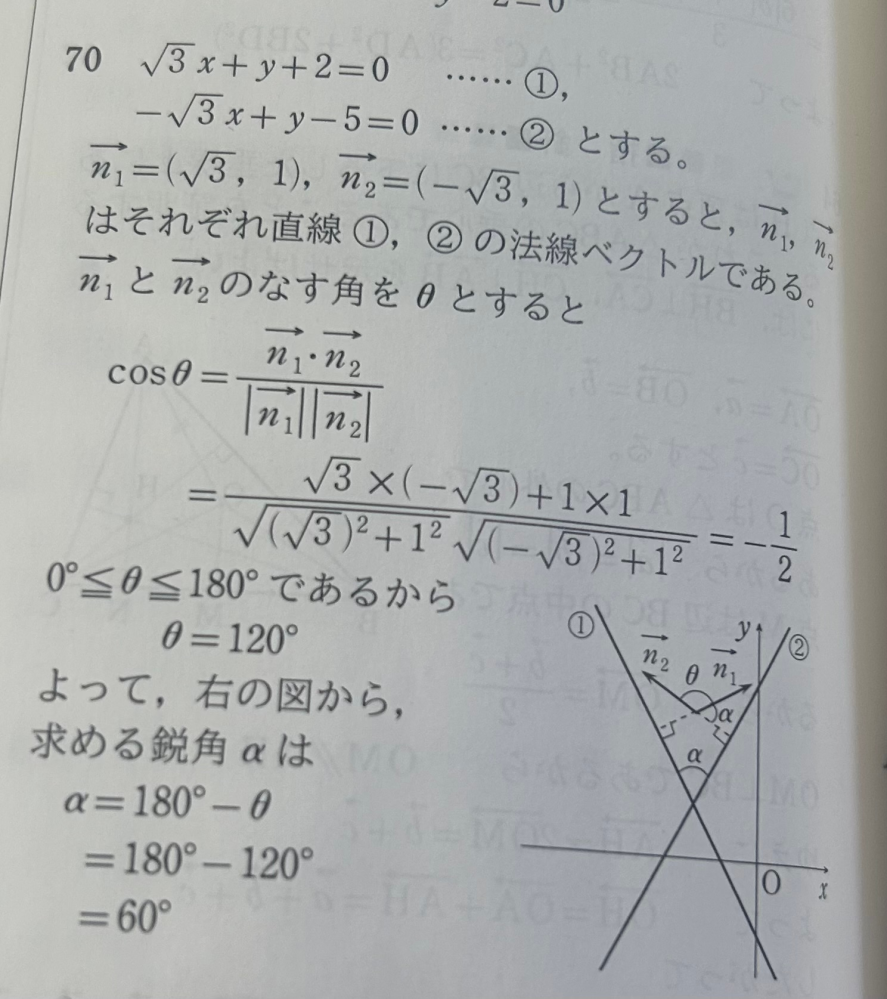 70 √3x+y+2=0 ……①,
-√3x+y-5=0 ……② とする。
n₁→=(√3, 1), n₂→=(-√3, 1)とすると, n₁→, n₂→
はそれぞれ直線①, ②の法線ベクトルである。
n₁→とn₂→のなす角をθとすると
cosθ=n₁→・n₂→/|n₁→||n₂→|
=√3×(-√3)+1×1/√(√3)²+1² √(-√3)²+1²=-1/2
0°≦θ≦180°であるから
θ=120°
よって, 右の図から,
求める鋭角αは
α=180°-θ
=180°-120°
=60°
① y ②
n₂→ θ n₁→
α
α
O x